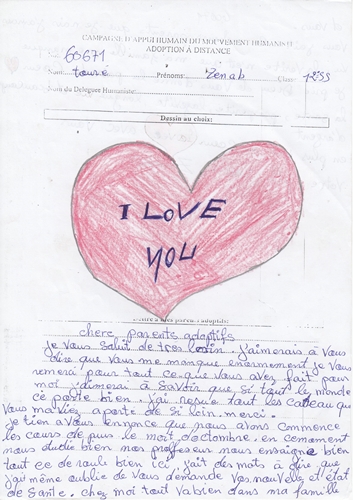 CAMPAGNE D'APPUI HUMAIN DU MOUVEMENT HUMANISTE
ADOPTION A DISTANCE
60671
Nom: touré Prénoms: Zenab Classe: 12SS
Nom du Délégué Humaniste:
Dessin au choix:
I LOVE
YOU
cherc parents adoptifs
Je vous salut de tres loin. j'aimerais à vous
dire que vous me manque enormement Je vous
remerci pour tout ce que vous avez fait pour
moi j'aimerai à savoir que si tout le monde
ce porte bien. j'ai reçu tout les cadeau que
vous m'aviez aporte de si loin. merci.
Je tien a vous annonce que nous avons commence
les cours depuis le mois d'octombre. en ce moment
nous etudie bien nos professeur nous enseigne bien
tout ce deroule bien ici j'ait des mots à dire que
j'ai même oublié de vous demande vos nouvelles et etat
de Sante. chez moi tout va bien dans ma famille